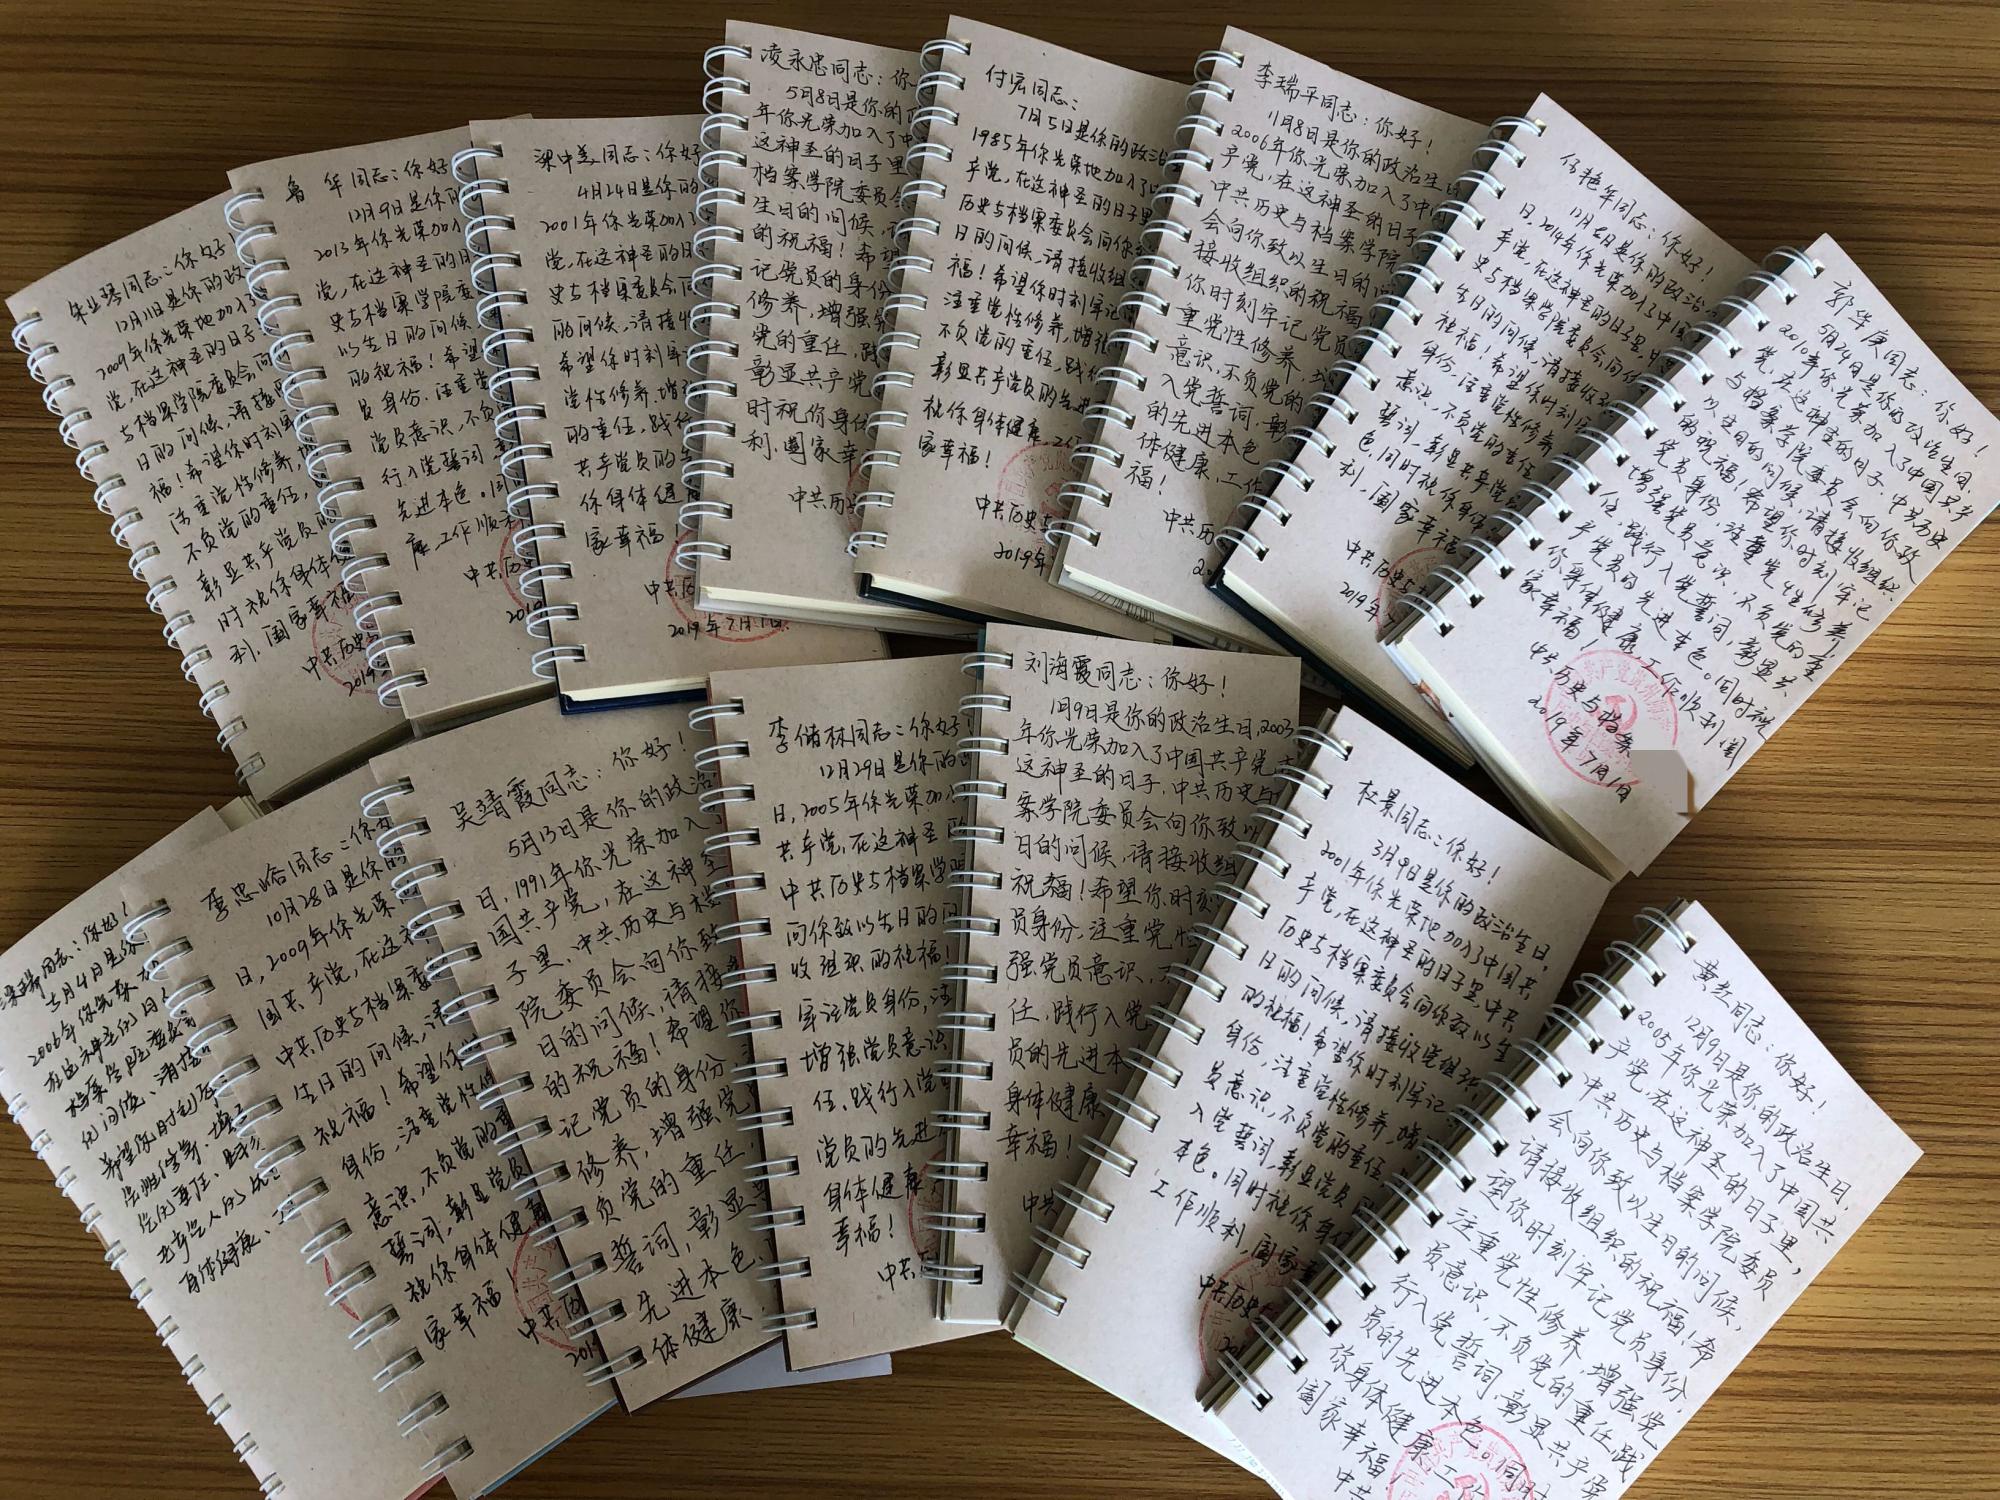 同志:你好
12月11日是你的政
2009年你光荣地加入了
党,在这神圣的日子
与档案学院委员会向
日的问候,请接
福!希望你时刻牢
注重党性修养,增
不负党的重任,
彰显共产党员的
时祝你身体健
利,阖家幸福
中共历史
2019年
鲁华同志:你好
12月9日是你的
2013年你光荣加入
党,在这神圣的日
史与档案学院委
以生日的问候
的祝福!希望
员身份,注重党
党员意识,不负
行入党誓词
先进本色。同
康,工作顺利
中共历
201
梁中美同志:你好
4月24日是你的
2001年你光荣加入了
党,在这神圣的日
史与档案委员会向
的问候,请接收
希望你时刻牢
党性修养,增
的重任,践行
共产党员的
你身体健
家幸福!
中共历
2019年7月1日
凌永忠同志:你
5月8日是你的政
年你光荣加入了中
这神圣的日子里
档案学院委员会
生日的问候,
的祝福!希望
记党员的身份
修养,增强
党的重任,践
彰显共产党
时祝你身体
利,阖家幸
中共历
付宏同志:
7月5日是你的政治
1985年你光荣地加入了中
产党,在这神圣的日子里
历史与档案委员会向你致
日的问候,请接收组
福!希望你时刻牢记
注重党性修养,增强
不负党的重任,践
彰显共产党员的先进
祝你身体健康,工作
家幸福!
中共历史
2019年
李瑞平同志:你好!
11月8日是你的政治生日
2006年你光荣加入了中国
产党,在这神圣的日子
中共历史与档案学院
会向你致以生日的问
接收组织的祝福
你时刻牢记党员
重党性修养,增
意识,不负党的
入党誓词,彰
的先进本色
体健康,工作
福!
中共历
2
任艳年同志:你好!
12月2日是你的政治
日,2014年你光荣加入了中国
产党,在这神圣的日子里,中
史与档案学院委员会向你
生日的问候,请接收组
祝福!希望你时刻牢
身份,注重党性修养
意识,不负党的重任
誓词,彰显共产党员
色,同时祝你身体
利,阖家幸福
中共历史与
2019年7
郭华庚同志:你好!
5月24日是你的政治生日,
2010年你光荣加入了中国共产
党,在这神圣的日子,中共历史
与档案学院委员会向你致
以生日的问候,请接收组织
的祝福!希望你时刻牢记
党员身份,注重党性修养,
增强党员意识,不负党的重
任,践行入党誓词,彰显共
产党员的先进本色。同时祝
你身体健康,工作顺利,阖
家幸福!
中共历史与档案
2019年7月1日
同志:你好!
5月4日是你
2006年你光荣加
在这神圣的日
档案学院委员
的问候,请接
希望你时刻牢
党性修养,增
党的重任,践行
共产党人的先
身体健康,工
李忠哈同志:你好
10月28日是你的
日,2009年你光荣
国共产党,在这神
中共历史与档案委
生日的问候,请
祝福!希望你
身份,注重党性修
意识,不负党的重
誓词,彰显党员
祝你身体健康
家幸福!
中共历
201
吴靖霞同志:你好!
5月13日是你的政治
日,1991年你光荣加入了
国共产党,在这神圣
子里,中共历史与档
院委员会向你致
日的问候,请接
的祝福!希望你
记党员的身份
修养,增强党
负党的重任,
誓词,彰显共
先进本色,
体健康,
李倩林同志:你好
12月29日是你的
日,2005年你光荣加
共产党,在这神圣的
中共历史与档案学院
向你致以生日的问
收组织的祝福!
牢记党员身份,注
增强党员意识
任,践行入党
党员的先进
身体健康
幸福!
中共
刘海霞同志:你好!
1月9日是你的政治生日,2003
年你光荣加入了中国共产党,在
这神圣的日子,中共历史与
案学院委员会向你致以
日的问候,请接收组
祝福!希望你时刻
员身份,注重党性
强党员意识,不
任,践行入党
员的先进本
身体健康
幸福!
中共
杜景同志:你好!
3月9日是你的政治生日,
2001年你光荣地加入了中国共
产党,在这神圣的日子里,中共
历史与档案委员会向你致以生
日的问候,请接收党组织
的祝福!希望你时刻牢记
身份,注重党性修养,增
员意识,不负党的重任
入党誓词,彰显党员的
本色。同时祝你身体
工作顺利,阖家
中共历史与
201
黄红同志:你好!
12月9日是你的政治生日,
2005年你光荣加入了中国共
产党,在这神圣的日子里,
中共历史与档案学院委员
会向你致以生日的问候,
请接收组织的祝福!希
望你时刻牢记党员身份,
注重党性修养,增强党
员意识,不负党的重任,践
行入党誓词,彰显共产党
员的先进本色。同时
你身体健康,工作
阖家幸福
中共